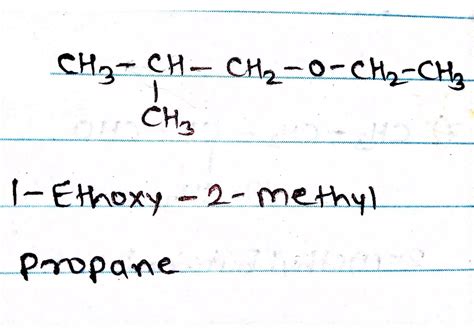 CH3 - CH - CH2 - O - CH2 - CH3
|
CH3
1 - Ethoxy - 2 - methyl
propane